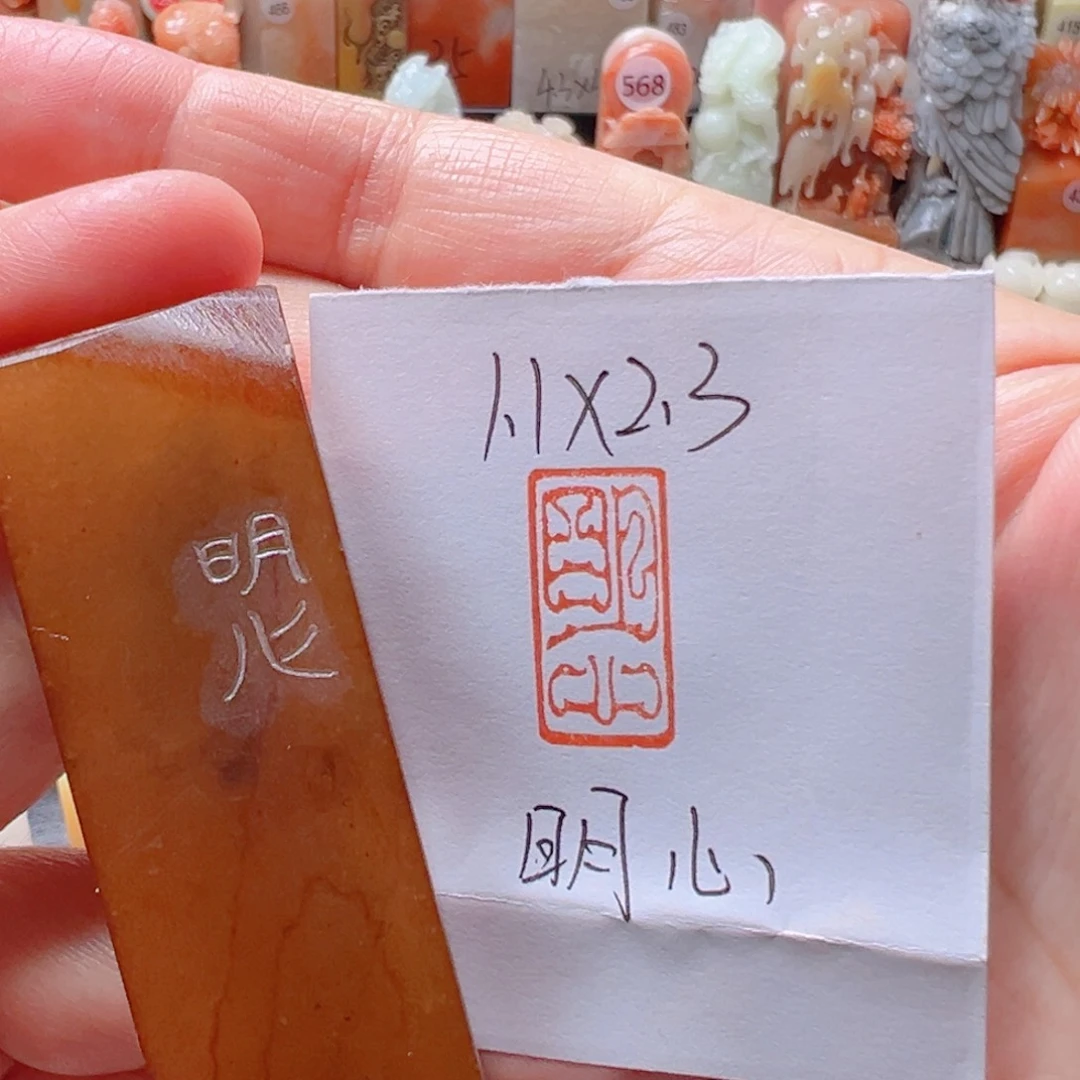 568
1.1X2.3
明心
明心
明心